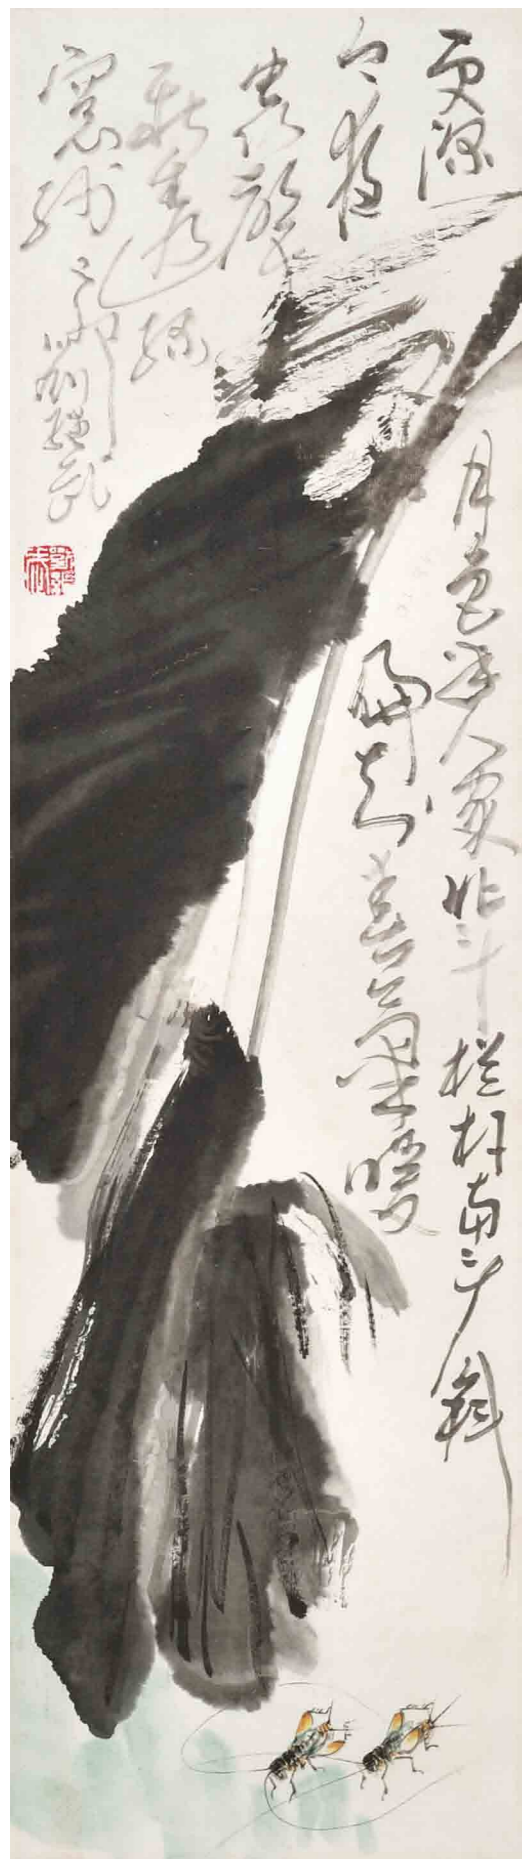 更深
月色半人家北斗栏杆南斗斜
今夜
偏知春氣暖
虫聲
新透绿
窗紗